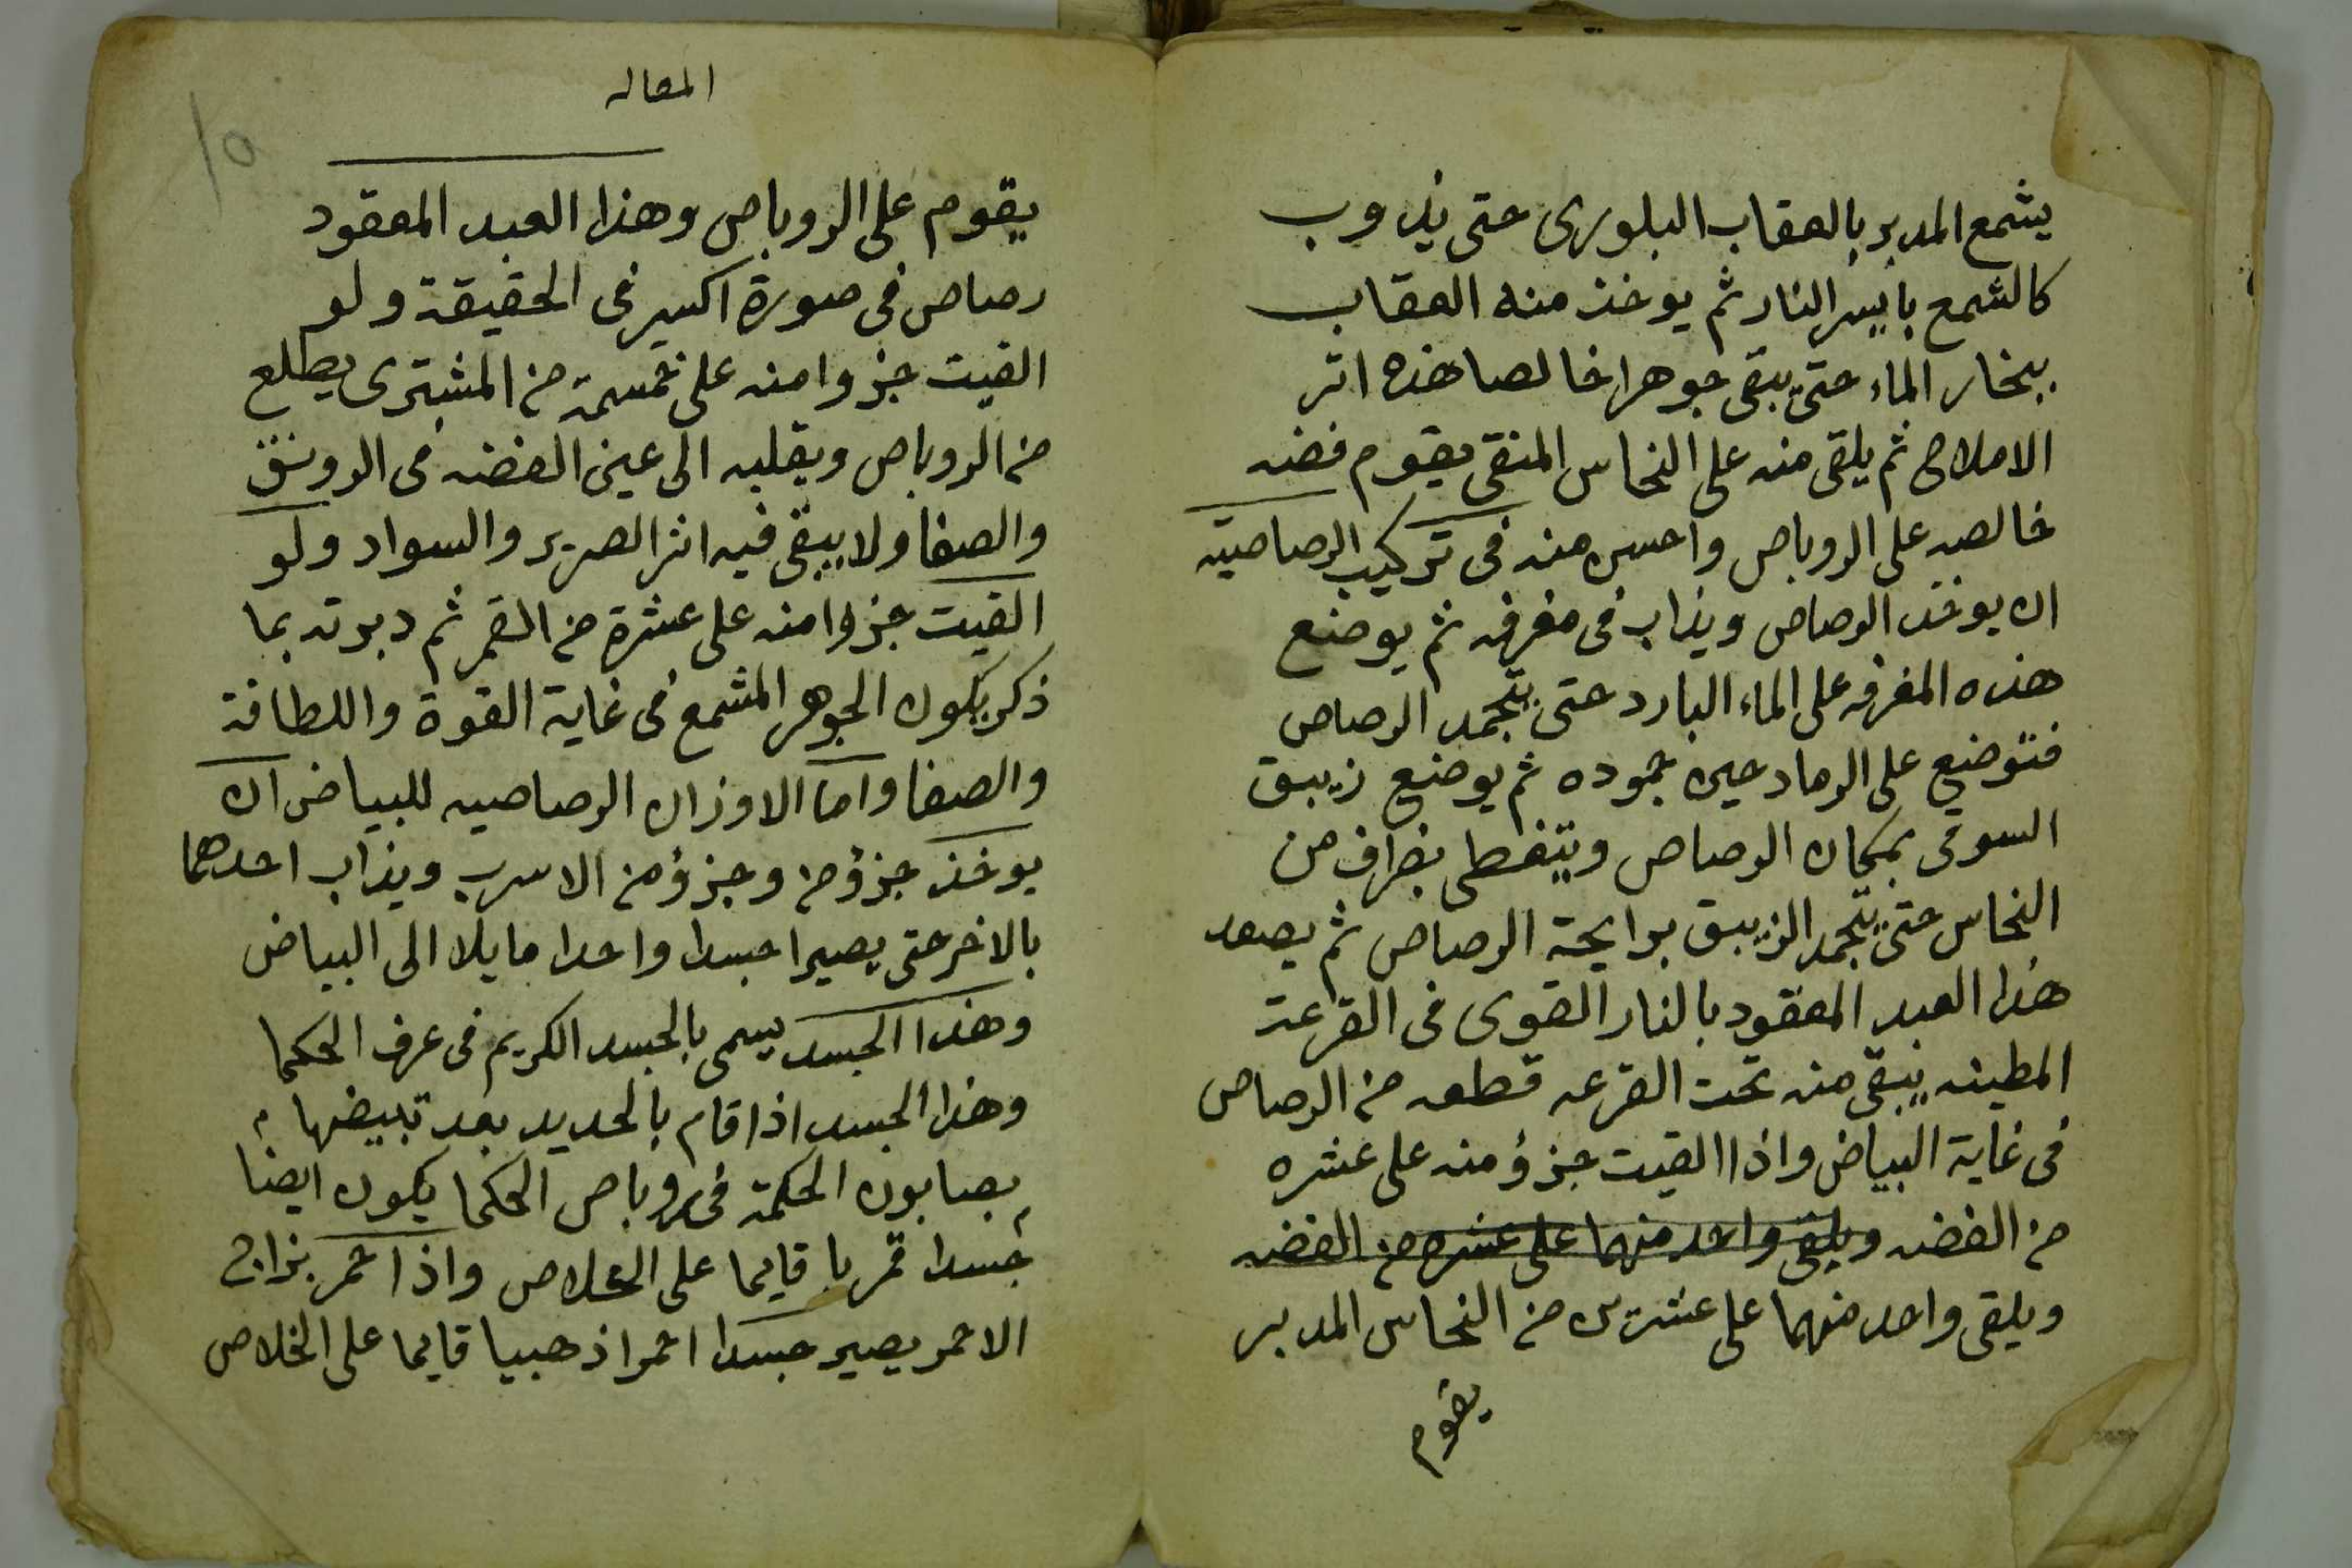 يشمع المدبر بالعقاب البلورى حتى يذوب
كالشمع بايسر النار ثم يوخذ منه العقاب
ببخار الماء حتى يبقى جوهرا خالصا هذه اثر
الاملاح ثم يلقى منه على النحاس المنقى يقوم فضه
خالصه على الروباص واحسن منه فى تركيب الرصاصيه
ان يوخذ الرصاص ويذاب فى مغرفه ثم يوضع
هذه المغرفه على الماء البارد حتى يتجمد الرصاص
فتوضع على الرماد حين جموده ثم يوضع زيبق
السوقى بمكان الرصاص ويتغطى بضراف من
النحاس حتى يتجمد الزيبق برايحة الرصاص ثم يصعد
هذا العبد المعقود بالنار القوى فى القرعت
المطينه يبقى منه تحت القرعه قطعه من الرصاص
فى غاية البياض واذا القيت جزؤ منه على عشره
من الفضه ويلقى واحد منهما على عشره من الفضه
ويلقى واحد منهما على عشرين من النحاس المدبر
يقوم
المقاله
١٥
يقوم على الروباص وهذا العبد المعقود
رصاص فى صورة اكسير فى الحقيقة ولو
القيت جزوا منه على خمسة من المشترى يطلع
من الروباص ويقلبه الى عين الفضه فى الرونق
والصفا ولا يبقى فيه اثر الصرير والسواد ولو
القيت جزوا منه على عشرة من القمر ثم دبرته بما
ذكر يكون الجوهر المشمع فى غاية القوة واللطافة
والصفا واما الاوزان الرصاصيه للبياض ان
يوخذ جزؤ من وجزؤ من الاسرب ويذاب احدهما
بالاخر حتى يصيرا جسدا واحدا مايلا الى البياض
وهذا الجسد يسمى بالجسد الكريم فى عرف الحكما
وهذا الجسد اذا قام بالحديد بعد تبييضها
بصابون الحكمة فى روباص الحكما يكون ايضا
جسدا قمريا قايما على الخلاص واذا احمر بزاج
الاحمر يصير جسدا احمرا ذهبيا قايما على الخلاص